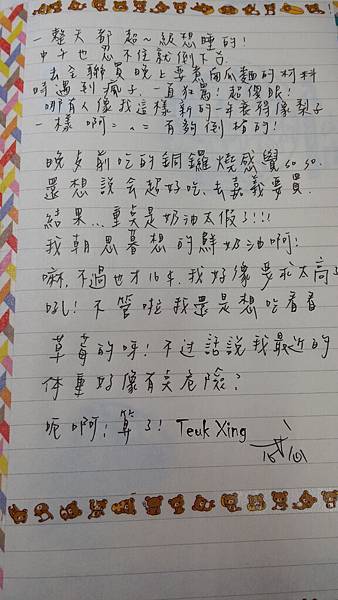 一整天都超~級想睡的!
中午也忍不住就倒下了
去全聯買晚上要煮南瓜麵的材料
時遇到瘋子,一直狂罵!超傻眼!
哪有人像我這樣新的一年衰得像梨子
一樣啊=^=有夠倒楣的!
晚点前吃的銅鑼燒感覺so so.
還想說會超好吃,去嘉義要買.
結果...重点是奶油太假了!!!
我朝思暮想的鮮奶油啊!
嘛,不過也才16元,我好像要求太高
吼!不管啦我還是想吃看看
草莓的呀!不过話說我最近的
体重好像有点危險?
呃啊!算了! Teuk Xing